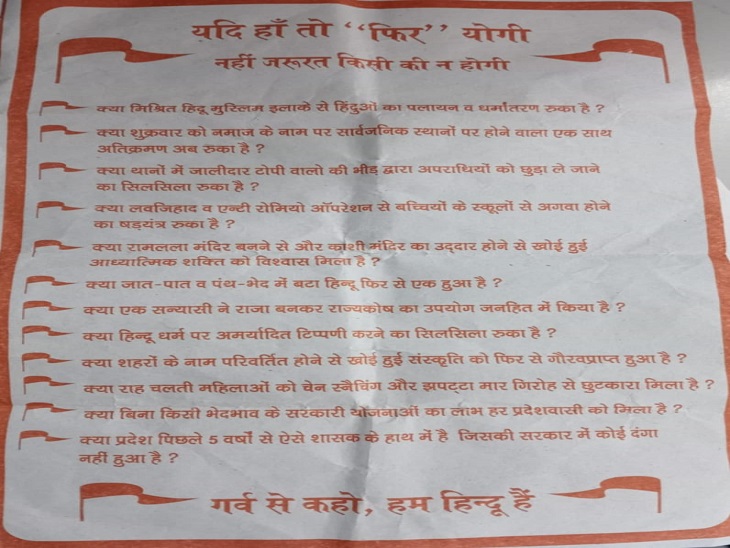 यदि हाँ तो ‘‘फिर’’ योगी
नहीं जरूरत किसी की न होगी
क्या मिश्रित हिदू मुस्लिम इलाके से हिंदुओं का पलायन व धर्मांतरण रुका है ?
क्या शुक्रवार को नमाज के नाम पर सार्वजनिक स्थानों पर होने वाला एक साथ
अतिक्रमण अब रुका है ?
क्या थानों में जालीदार टोपी वालो की भीड़ द्वारा अपराधियों को छुड़ा ले जाने
का सिलसिला रुका है ?
क्या लवजिहाद व एन्टी रोमियो ऑपरेशन से बच्चियों के स्कूलों से अगवा होने
का षडयंत्र रुका है ?
क्या रामलला मंदिर बनने से और काशी मंदिर का उद्दार होने से खोई हुई
आध्यात्मिक शक्ति को विश्वास मिला है ?
क्या जात-पात व पंथ-भेद में बटा हिन्दू फिर से एक हुआ है ?
क्या एक सन्यासी ने राजा बनकर राज्यकोष का उपयोग जनहित में किया है ?
क्या हिन्दू धर्म पर अमर्यादित टिप्पणी करने का सिलसिला रुका है ?
क्या शहरों के नाम परिवर्तित होने से खोई हुई संस्कृति को फिर से गौरवप्राप्त हुआ है ?
क्या राह चलती महिलाओं को चेन स्नैचिंग और झपट्टा मार गिरोह से छुटकारा मिला है ?
क्या बिना किसी भेदभाव के सरकारी योजनाओं का लाभ हर प्रदेशवासी को मिला है ?
क्या प्रदेश पिछले 5 वर्षों से ऐसे शासक के हाथ में है जिसकी सरकार में कोई दंगा
नहीं हुआ है ?
गर्व से कहो, हम हिन्दू हैं